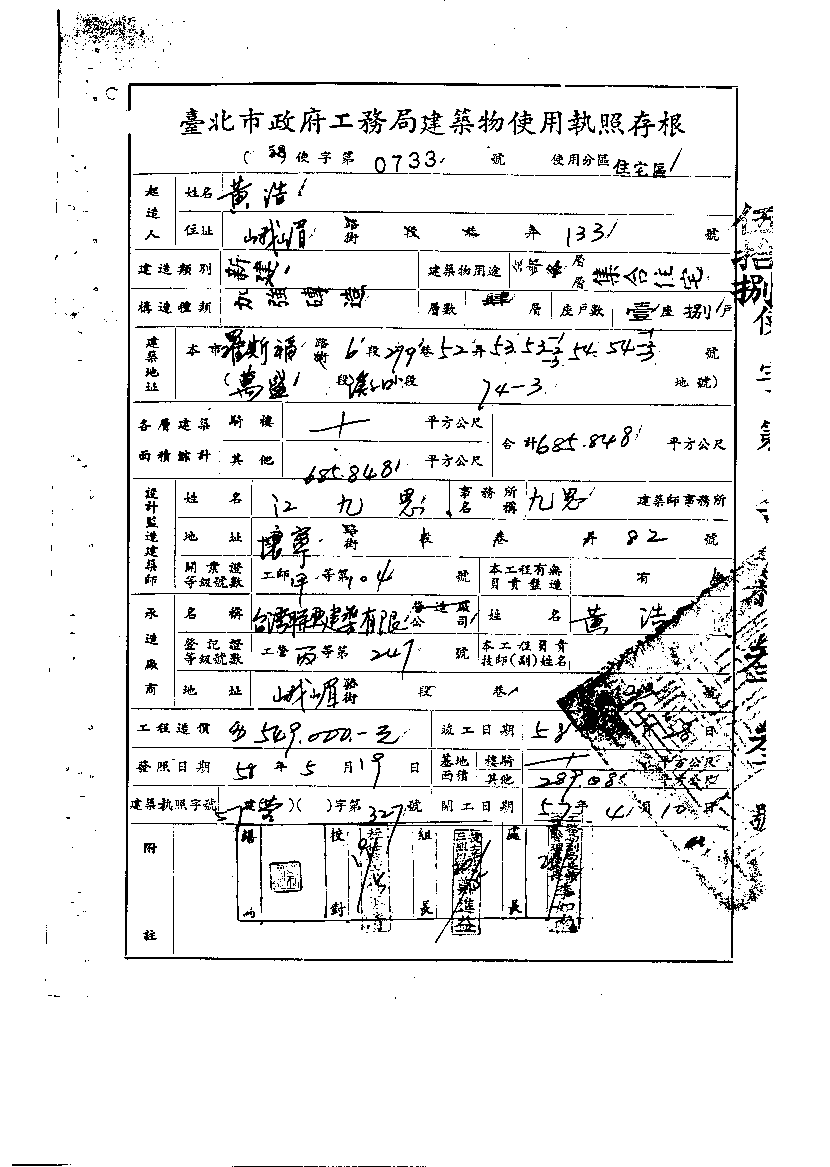 臺北市政府工務局建築物使用執照存根
( 使字第 0733 號 使用分區 住宅區
起造人 姓名 黃浩
住址 峨嵋 路街 段 巷 弄 133 號
建造類別 新建 建築物用途 層層 集合住宅
構造種類 加強磚造 層數 肆 層 座戶數 壹 座 捌 戶
建築地址 本市 羅斯福 路街 6 段 279 巷 52 弄 53. 53-1-3 54. 54-1-3 號
(萬盛 段 溪口 小段 74-3 地號)
各層建築面積總計 騎樓 平方公尺 合計 685.848 平方公尺
其他 685.848 平方公尺
設計監造建築師 姓名 江九思 事務所名稱 九思 建築師事務所
地址 懷寧 路街 段 巷 弄 82 號
開業證等級號數 工師 甲 等第 104 號 本工程有無負責監造 有
承造廠商 名稱 台灣聯亞建築有限 營造廠公司 姓名 黃浩
登記證等級號數 工營 丙 等第 247 號 本工程負責技師(副)姓名
地址 峨嵋 路街 段 巷 號
工程造價 549.000.-元 竣工日期 58 日
發照日期 58 年 5 月 19 日 基地面積 樓騎 平方公尺
其他 289.08 平方公尺
建築執照字號 57 建(營)( )字第 327 號 開工日期 57 年 4 月 10 日
附註 繕 校對 組長 處長
伍拾捌使字第
號